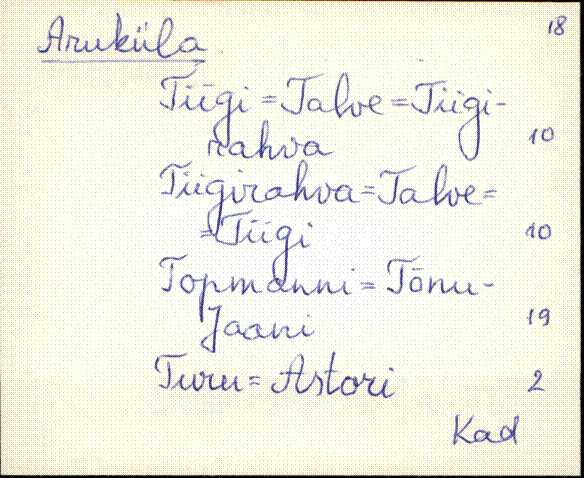 18
Aruküla
Tiigi = Talve = Tiigi-
rahva 10
Tiigirahva = Talve =
= Tiigi 10
Topmanni = Tõnu-
Jaani 19
Turu = Astori 2
Kad